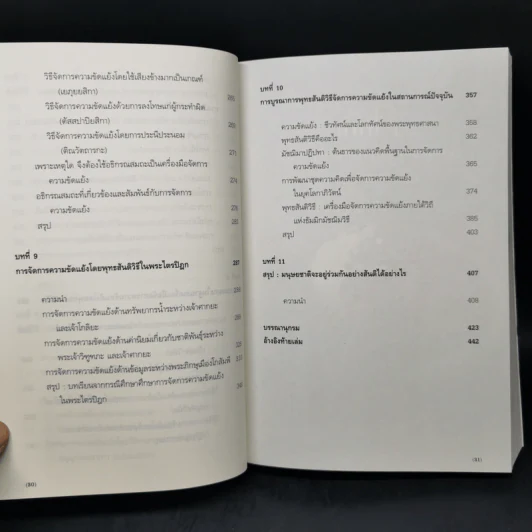 วิธีจัดการความขัดแย้งโดยใช้เสียงข้างมากเป็นเกณฑ์
(เยภุยยสิกา)
วิธีจัดการความขัดแย้งด้วยการลงโทษแก่ผู้กระทำผิด
(ตัสสปาปิยสิกา) 269
วิธีจัดการความขัดแย้งโดยการประนีประนอม
(ติณวัตถารกะ) 271
เพราะเหตุใด จึงต้องใช้อธิกรณสมถะเป็นเครื่องมือจัดการ
ความขัดแย้ง 274
อธิกรณสมถะที่เกี่ยวข้องและสัมพันธ์กับการจัดการ
ความขัดแย้ง
สรุป
บทที่ 9
การจัดการความขัดแย้งโดยพุทธสันติวิธีในพระไตรปิฎก 287
ความนำ
การจัดการความขัดแย้งด้านทรัพยากรน้ำระหว่างเจ้าศากยะ
และเจ้าโกลิยะ
การจัดการความขัดแย้งด้านค่านิยมเกี่ยวกับชาติพันธุ์ระหว่าง
พระเจ้าวิฑูฑภะ และเจ้าศากยะ
การจัดการความขัดแย้งด้านข้อมูลระหว่างพระภิกษุเมืองโกสัมพี
สรุป : บทเรียนจากกรณีศึกษาการจัดการความขัดแย้ง
ในพระไตรปิฎก
(90)
บทที่ 10
การบูรณาการพุทธสันติวิธีจัดการความขัดแย้งในสถานการณ์ปัจจุบัน 357
ความขัดแย้ง : ชีวทัศน์และโลกทัศน์ของพระพุทธศาสนา 358
พุทธสันติวิธีคืออะไร 362
มัชฌิมาปฏิปทา : ต้นธารของแนวคิดพื้นฐานในการจัดการ
ความขัดแย้ง 365
การพัฒนาชุดความคิดเพื่อจัดการความขัดแย้ง
ในยุคโลกาภิวัตน์ 374
พุทธสันติวิธี : เครื่องมือจัดการความขัดแย้งภายใต้วิถี
แห่งธัมมิกมัชฌิมวิธี 385
สรุป 403
บทที่ 11
สรุป : มนุษยชาติจะอยู่ร่วมกันอย่างสันติได้อย่างไร 407
ความนำ 409
บรรณานุกรม 423
อ้างอิงท้ายเล่ม 442
(91)